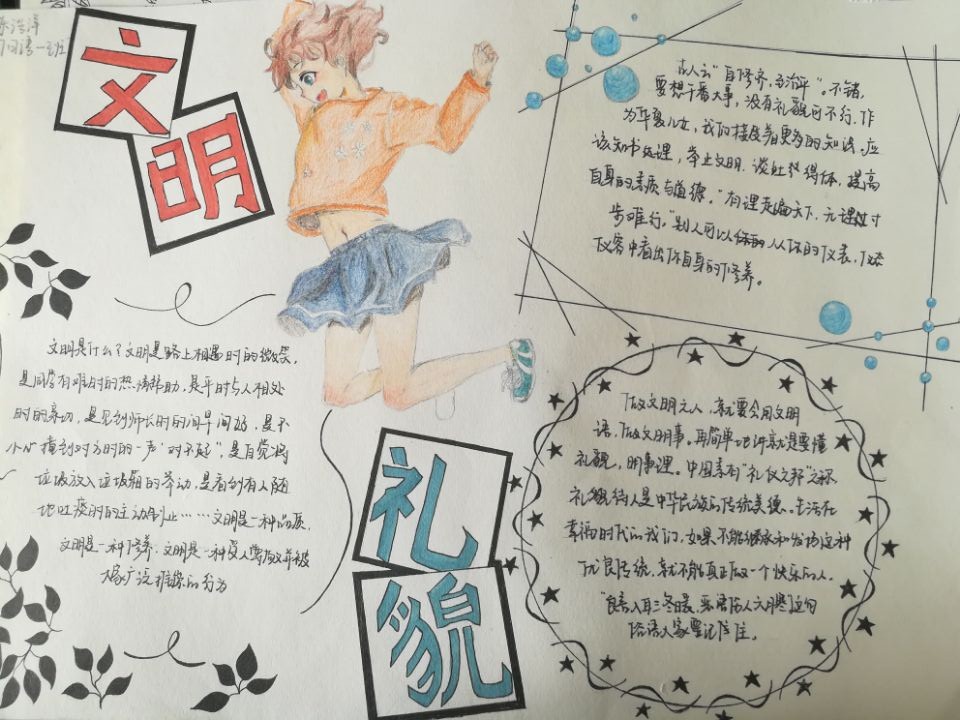 文
明
古人云“自修齐,至治平”。不错,
要想干番大事,没有礼貌可不行,作
为华夏儿女,我们接受着更多的知识,应
该知书达理,举止文明,谈吐得体,提高
自身的素质与道德。“有理走遍天下,无理寸
步难行。”别人可以从你的仪表,仪态
仪容中看出你自身的修养。
文明是什么?文明是路上相遇时的微笑,
是同学有难时的热情帮助,是平时与人相处
时的亲切,是见到师长时的问早问好,是不
小心撞到对方时的一声“对不起”,是自觉将
垃圾放入垃圾箱的举动,是看到有人随
地吐痰时的主动制止……文明是一种品质,
文明是一种修养,文明是一种受人尊敬并被
大家广泛推崇的行为
礼
貌
做文明之人,就要会用文明
语,做文明事。再简单地讲就是要懂
礼貌,明事理。中国素有“礼仪之邦”之称
礼貌待人是中华民族的传统美德。生活在
幸福时代的我们,如果不能继承和发扬这种
优良传统,就不能真正做一个快乐的人。
“良言入耳三冬暖,恶语伤人六月寒”这句
俗语大家要记住。